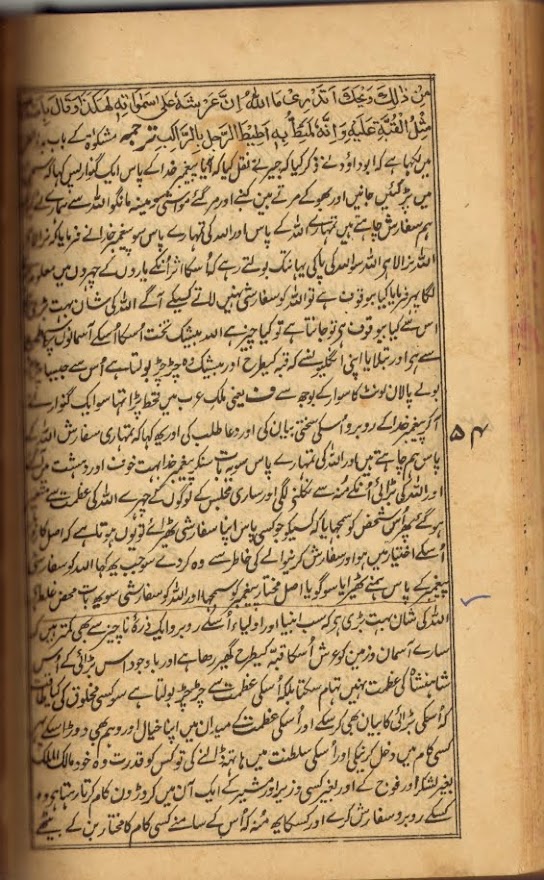 مِنْ ذٰلِكَ وَيْحَكَ اَتَدْرِيْ مَا اللهُ اِنَّ عَرْشَهٗ عَلٰى سَمٰوٰاتِهٖ لَهٰكَذَا وَقَالَ بِاَصَابِعِهٖ
مِثْلُ الْقُبَّةِ عَلَيْهِ وَاِنَّهٗ لَيَئِطُّ بِهٖ اَطِيْطَ الرَّحْلِ بِالرَّاكِبِ ترجمہ مشکوٰۃ کے باب بدء
میں لکہا ہے کہ ابو داؤد نے ذکر کیا کہ جبیر نے نقل کیا کہ آیا پیغمبر خدا کے پاس ایک گنوار پس کہا کہ
میں پڑ گئیں جانیں اور بھوکے مرتے ہین کنبے اور مر گئے مواشی سو مینہ مانگو اللہ سے ہمارے لئے
ہم سفارش چاہتے ہیں تمہارے اللہ کے پاس اور اللہ کی تمہارے پاس سو پیغمبر خدا نے فرمایا کہ نرالا
اللہ نرالا ہی اللہ سو اللہ کی پاکی یہانتک بولتے رہے کہ اسکا اثر انکے یاروں کے چہروں میں معلوم
لگا پہر فرمایا کیا بیوقوف ہے تو اللہ کو سفارشی نہیں لاتے کسیکے آگے اللہ کی شان بہت بڑی
اس سے کیا بیوقوف ہی تو جانتا ہے تو کیا چیز ہے اللہ بیشک تخت اسکا اُسکے آسمانوں پر
سے ہی اور بتلایا اپنی انگلیوں سے کہ قبہ کیطرح اور بیشک وہ چڑچڑ بولتا ہے اُس سے جیسا
بولے پالان اونٹ کا سوار کے بوجھ سے ف یعنی ملک عرب میں قحط پڑا تہا سو ایک گنوار نے
آکر پیغمبر خدا کے روبرو اُسکی سختی بیان کی اور دعا طلب کی اور یہ کہا کہ تمہاری سفارش اللہ کے
پاس ہم چاہتے ہیں اور اللہ کی تمہارے پاس سو یہ بات سنکر پیغمبر خدا بہت خوف اور دہشت میں آگئے
اور اللہ کی بڑائی اُنکے مُنہ سے نکلنے لگی اور ساری مجلس کے لوگوں کے چہرے اللہ کی عظمت سے متغیر
ہوگئے پہر اُس شخص کو سمجہایا کہ کسیکو جو کسی پاس اپنا سفارشی ٹہیرائے تو یوں ہوتا ہے کہ اصل کاروبار
اُسکے اختیار میں ہو اور سفارش کرنیوالے کی خاطر سے وہ کر دے سو جب یہ کہا اللہ کو سفارشی
پیغمبر کے پاس ہمنے ٹھیرایا سو گویا اصل مختار پیغمبر کو سمجہا اور اللہ کو سفارشی سو یہ بات محض غلط ہی
اللہ کی شان بہت بڑی ہی کہ سب انبیا اور اولیاء اُسکے روبرو ایک ذرۂ ناچیز سے بھی کمتر ہیں کہ
سارے آسمان و زمین کو عرش اُسکا قبہ کیطرح گھیر رہا ہے اور باوجود اس بڑائی کے اُس
شاہنشاہ کی عظمت نہیں تہام سکتا بلکہ اُسکی عظمت سے چڑچڑ بولتا ہے سو کسی مخلوق کی کیا طاقت
کہ اُسکی بڑائی کا بیان بھی کر سکے اور اُسکی عظمت کے میدان میں اپنا خیال اور وہم بھی دوڑا سکے پہر
کسی کام میں دخل کرنیکی اور اُسکی سلطنت میں ہاتہہ ڈالنے کی تو کس کو قدرت وہ خود مالک الملک
بغیر لشکر اور فوج کے اور بغیر کسی وزیر اور مشیر کے ایک آن میں کروڑون کام کرتا رہتا ہی وہ
کسکے روبرو سفارش کرے اور کسکا یہ مُنہ کہ اُس کے سامنے کسی کام کا مختار بن کے بیٹھے
۵۴